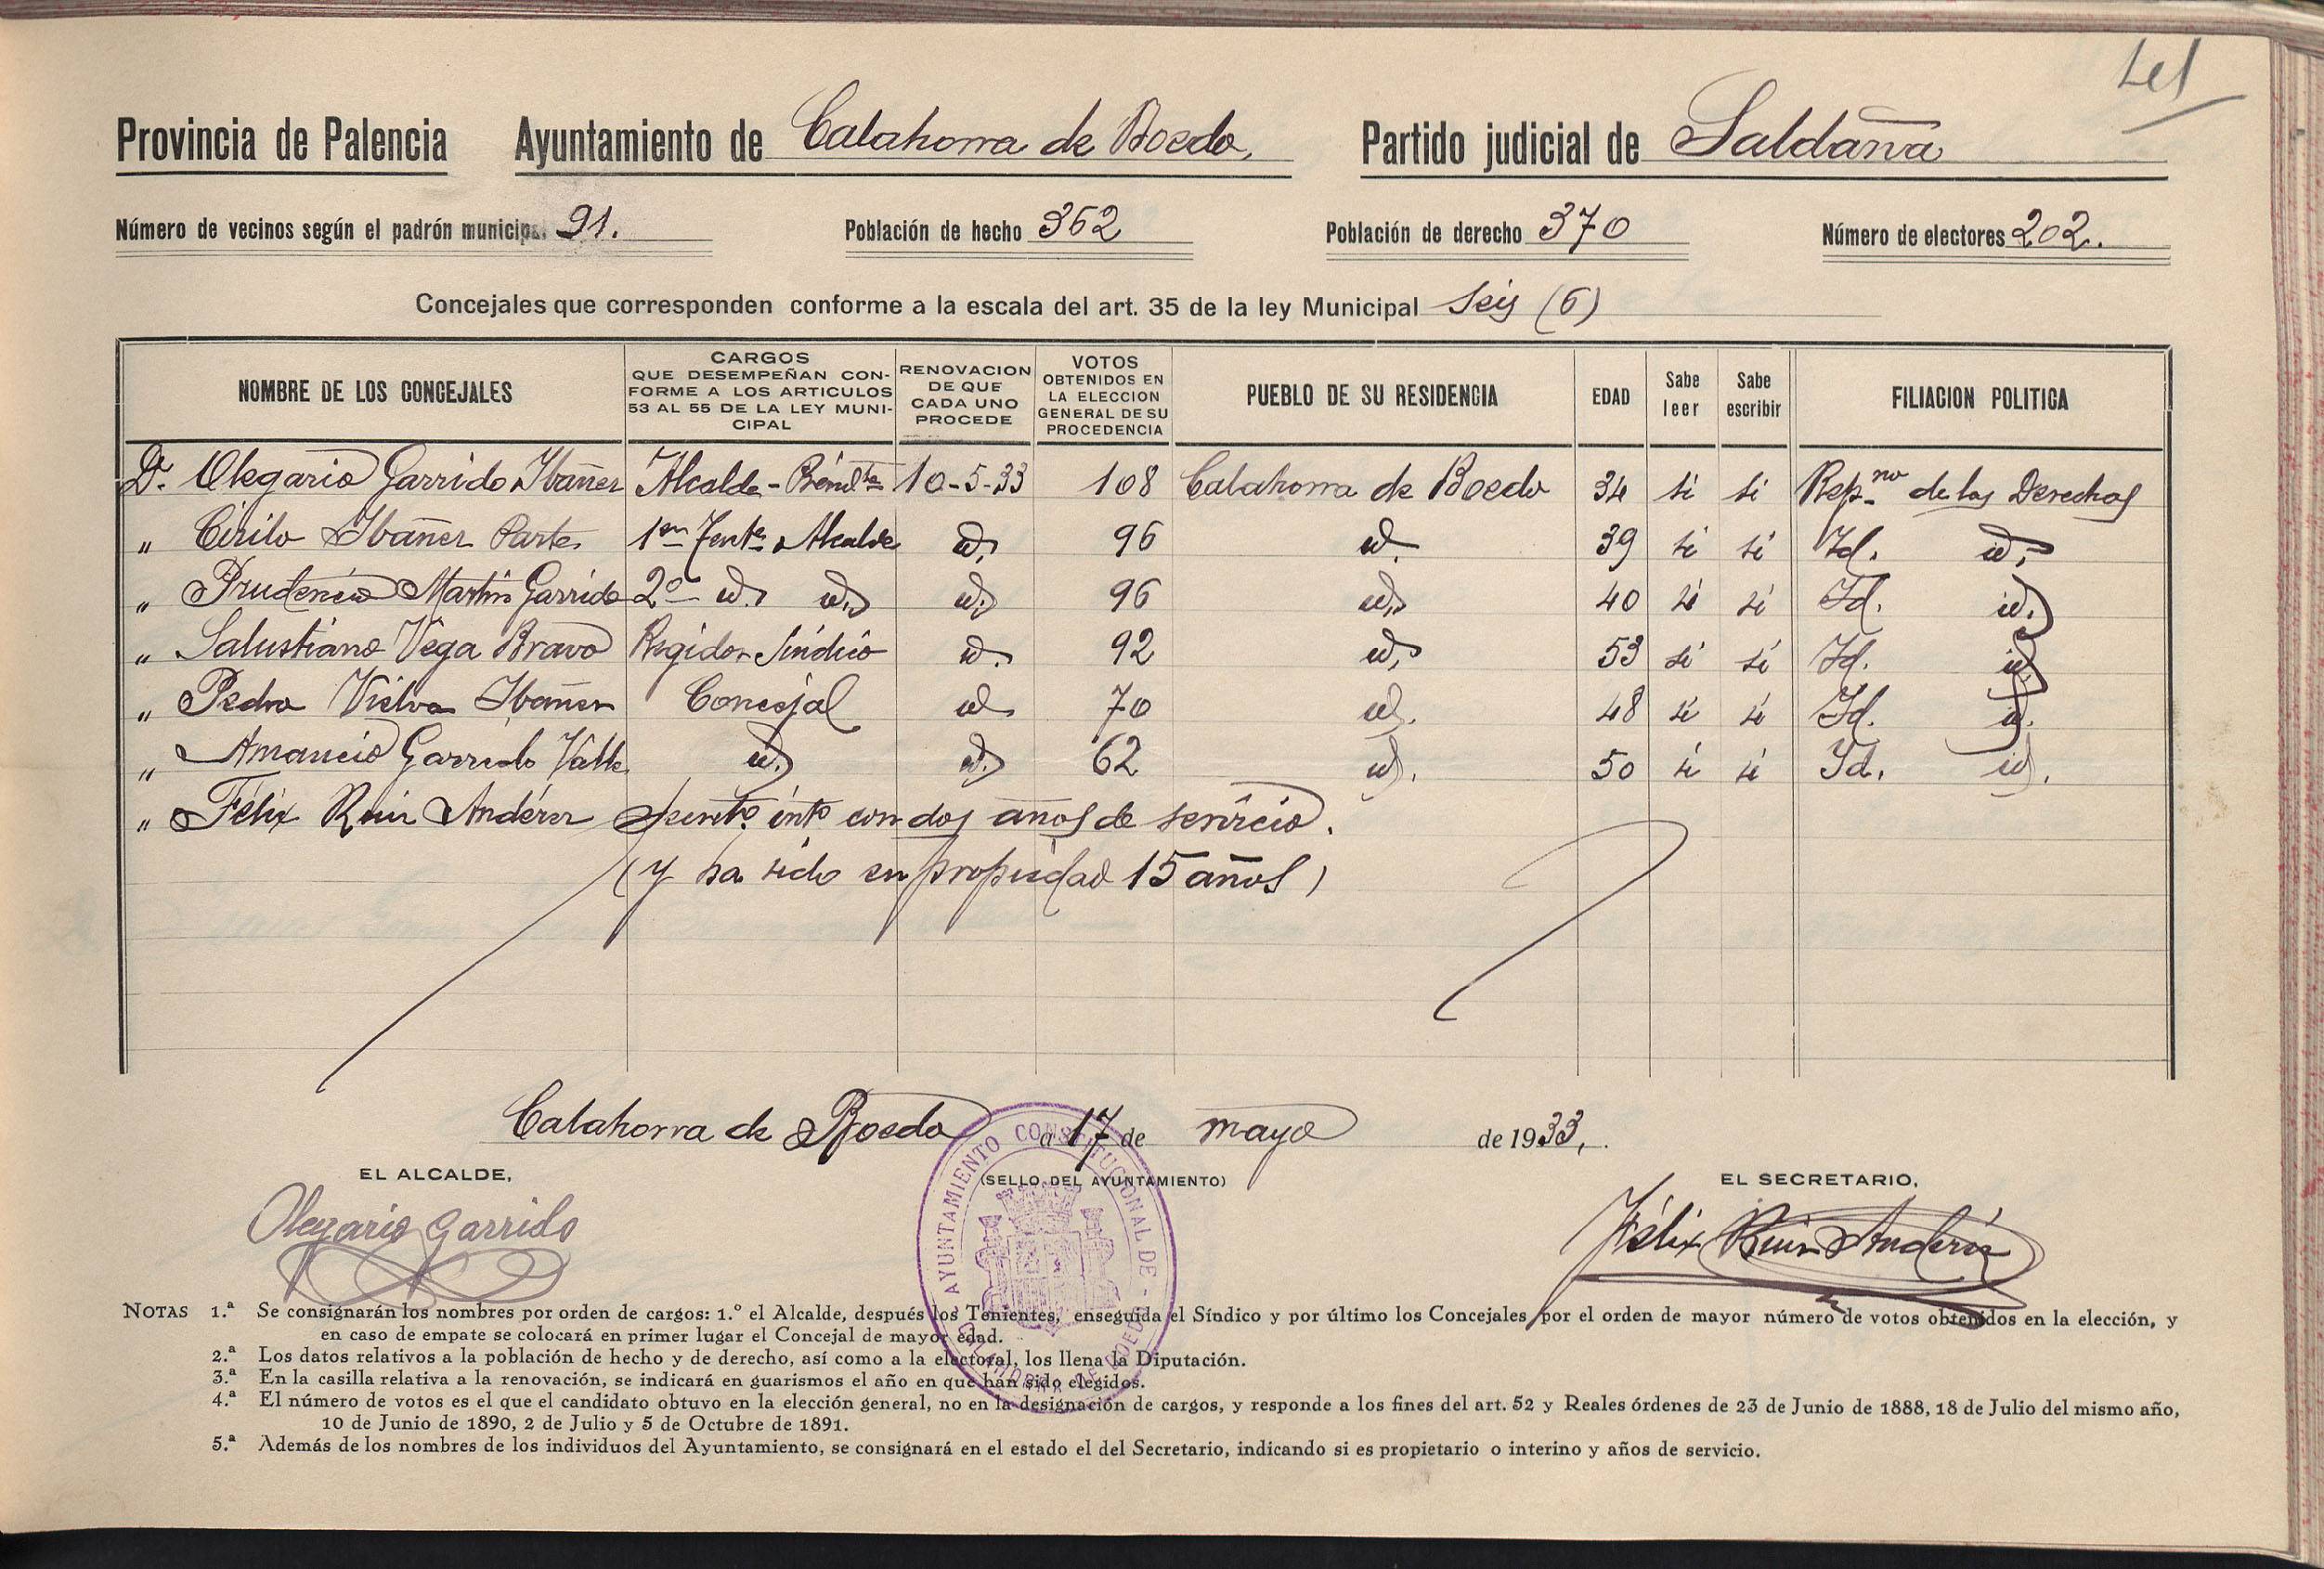 41
Provincia de Palencia Ayuntamiento de Calahorra de Boedo. Partido judicial de Saldaña
Número de vecinos según el padrón municipal 91. Población de hecho 362 Población de derecho 370 Número de electores 202.
Concejales que corresponden conforme a la escala del art. 35 de la ley Municipal Seis (6)
NOMBRE DE LOS CONCEJALES
CARGOS
QUE DESEMPEÑAN CON-
FORME A LOS ARTICULOS
53 AL 55 DE LA LEY MUNI-
CIPAL
RENOVACION
DE QUE
CADA UNO
PROCEDE
VOTOS
OBTENIDOS EN
LA ELECCION
GENERAL DE SU
PROCEDENCIA
PUEBLO DE SU RESIDENCIA
EDAD
Sabe
leer
Sabe
escribir
FILIACION POLITICA
D. Olegario Garrido Ibañez Alcalde - 10-5-33 108 Calahorra de Boedo 34 si si Rep.no de las Derechas
" Cirilo Ibañez Parte 1er Tente Alcalde id. 96 id. 39 si si Id. id.
" Prudencio Martin Garrido 2º id. id. id. 96 id. 40 si si Id. id.
" Salustiano Vega Bravo Regidor Sindico id. 92 id. 53 si si Id. id.
" Pedro Vielva Ibañez Concejal id. 70 id. 48 si si Id. id.
" Amancio Garrido Valle id. id. 62 id. 50 si si Id. id.
" Félix Ruiz Andérez Secretº intº con dos años de servicio.
(y ha sido en propiedad 15 años)
Calahorra de Boedo a 17 de mayo de 1933.
EL ALCALDE,
(SELLO DEL AYUNTAMIENTO)
EL SECRETARIO,
Olegario Garrido
AYUNTAMIENTO CONSTITUCIONAL DE - CALAHORRA DE BOEDO
Félix Ruiz Andérez
NOTAS 1.ª Se consignarán los nombres por orden de cargos: 1.º el Alcalde, después los Tenientes, enseguida el Síndico y por último los Concejales por el orden de mayor número de votos obtenidos en la elección, y
en caso de empate se colocará en primer lugar el Concejal de mayor edad.
2.ª Los datos relativos a la población de hecho y de derecho, así como a la electoral, los llena la Diputación.
3.ª En la casilla relativa a la renovación, se indicará en guarismos el año en que han sido elegidos.
4.ª El número de votos es el que el candidato obtuvo en la elección general, no en la designación de cargos, y responde a los fines del art. 52 y Reales órdenes de 23 de Junio de 1888, 18 de Julio del mismo año,
10 de Junio de 1890, 2 de Julio y 5 de Octubre de 1891.
5.ª Además de los nombres de los individuos del Ayuntamiento, se consignará en el estado el del Secretario, indicando si es propietario o interino y años de servicio.